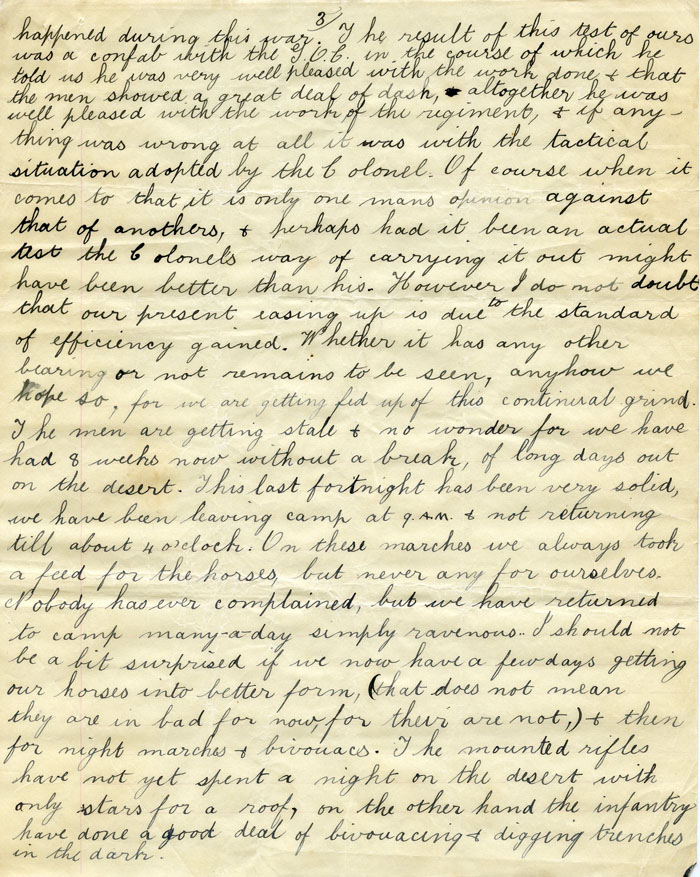 3
happened during this war. The result of this test of ours
was a confab with the G.O.C. in the course of which he
told us he was very well pleased with the work done & that
the men showed a great deal of dash, & altogether he was
well pleased with the work of the regiment, & if any-
thing was wrong at all it was with the tactical
situation adopted by the Colonel. Of course when it
comes to that, it is only one mans opinion against
that of anothers, & perhaps had it been an actual
test the Colonels way of carrying it out might
have been better than his. However I do not doubt
that our present easing up is due to the standard
of efficiency gained. Whether it has any other
bearing or not remains to be seen, anyhow we
hope so, for we are getting fed up of this continual grind.
The men are getting stale & no wonder for we have
had 8 weeks now without a break, of long days out
on the desert. This last fortnight has been very solid,
we have been leaving camp at 9.A.M. & not returning
till about 4 o'clock. On these marches we always took
a feed for the horses, but never any for ourselves.
Nobody has ever complained, but we have returned
to camp many-a-day simply ravenous. I should not
be a bit surprised if we now have a few days getting
our horses into better form, (that does not mean
they are in bad for now, for their are not,) & then
for night marches & bivouacs. The mounted rifles
have not yet spent a night on the desert with
only stars for a roof, on the other hand the infantry
have done a good deal of bivouacing & digging trenches
in the dark.